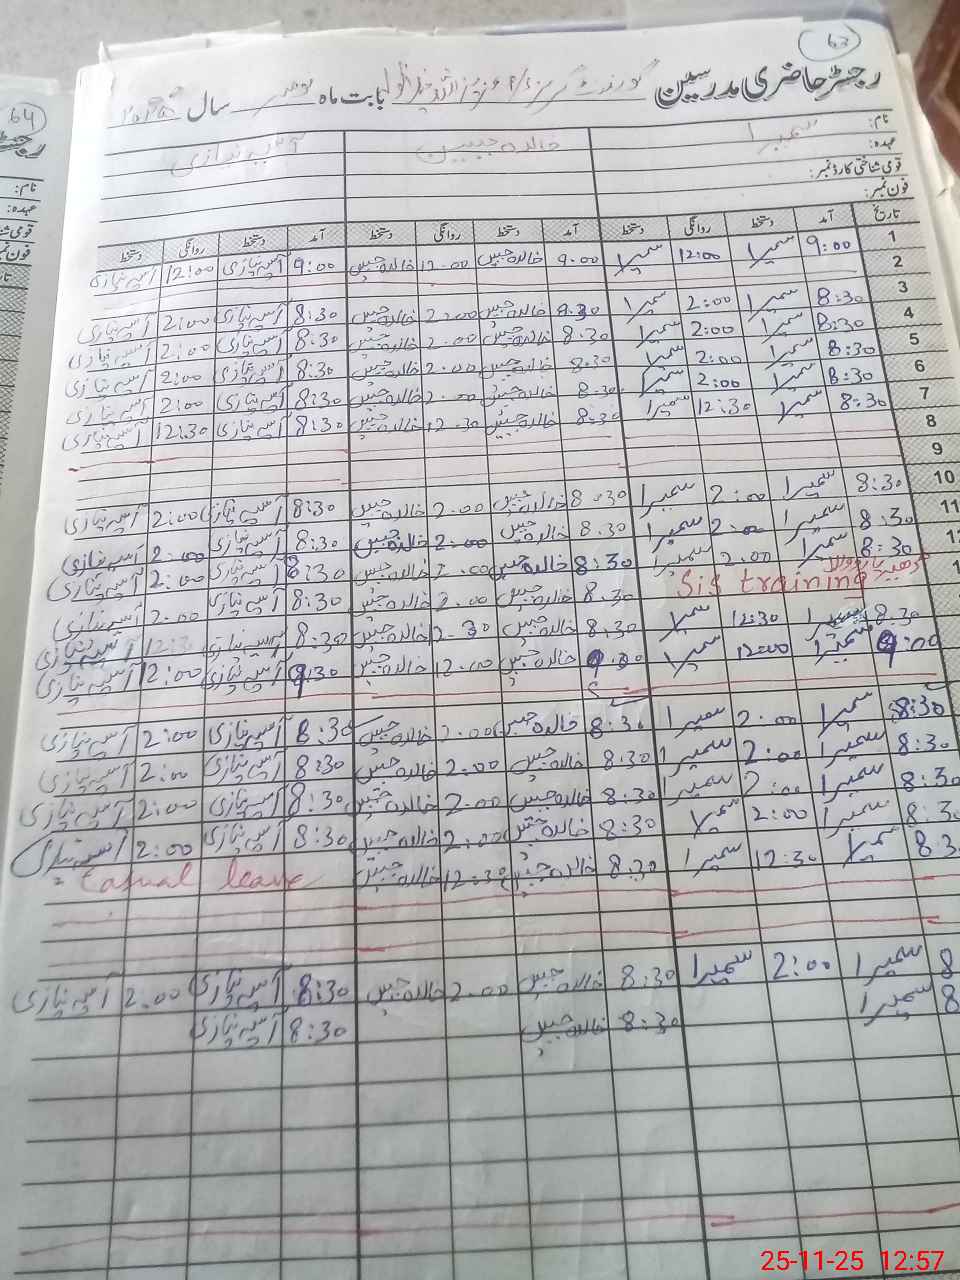 63
رجسٹر حاضری مدرسین گورنمنٹ گرلز بابت ماہ نومبر سال
64
نام:
عہدہ:
قومی شناختی کارڈ نمبر:
فون نمبر:
سمیرا خالدہ جبیں آسیہ نیازی
تاریخ آمد دستخط روانگی دستخط آمد دستخط روانگی دستخط آمد دستخط روانگی دستخط
1 9:00 سمیرا 12:00 سمیرا 9:00 خالدہ جبیں 12.00 خالدہ جبیں 9:00 آسیہ نیازی 12:00 آسیہ نیازی
2
3 8:30 سمیرا 2:00 سمیرا 8.30 خالدہ جبیں 2.00 خالدہ جبیں 8:30 آسیہ نیازی 2:00 آسیہ نیازی
4 8:30 سمیرا 2:00 سمیرا 8.30 خالدہ جبیں 2.00 خالدہ جبیں 8:30 آسیہ نیازی 2:00 آسیہ نیازی
5 8:30 سمیرا 2:00 سمیرا 8.30 خالدہ جبیں 2.00 خالدہ جبیں 8:30 آسیہ نیازی 2:00 آسیہ نیازی
6 8:30 سمیرا 2:00 سمیرا 8.30 خالدہ جبیں 2.00 خالدہ جبیں 8:30 آسیہ نیازی 2:00 آسیہ نیازی
7 8:30 سمیرا 12:30 سمیرا 8:30 خالدہ جبیں 12.30 خالدہ جبیں 8:30 آسیہ نیازی 12:30 آسیہ نیازی
8
9
10 8:30 سمیرا 2:00 سمیرا 8.30 خالدہ جبیں 2.00 خالدہ جبیں 8:30 آسیہ نیازی 2:00 آسیہ نیازی
11 8:30 سمیرا 2:00 سمیرا 8.30 خالدہ جبیں 2.00 خالدہ جبیں 8:30 آسیہ نیازی 2:00 آسیہ نیازی
8:30 سمیرا 2.00 سمیرا 8:30 خالدہ جبیں 2.00 خالدہ جبیں 8:30 آسیہ نیازی 2:00 آسیہ نیازی
Sis training 8.30 خالدہ جبیں 2.00 خالدہ جبیں 8:30 آسیہ نیازی 2.00 آسیہ نیازی
8.30 سمیرا 12:30 سمیرا 8:30 خالدہ جبیں 2.30 خالدہ جبیں 8:30 آسیہ نیازی 12:30 آسیہ نیازی
9:00 سمیرا 12:00 سمیرا خالدہ جبیں 12.00 خالدہ جبیں آسیہ نیازی 12:00 آسیہ نیازی
8:30 سمیرا 2:00 سمیرا 8:30 خالدہ جبیں 2.00 خالدہ جبیں 8:30 آسیہ نیازی 2:00 آسیہ نیازی
8:30 سمیرا 2:00 سمیرا 8:30 خالدہ جبیں 2.00 خالدہ جبیں 8:30 آسیہ نیازی 2:00 آسیہ نیازی
8:30 سمیرا 2:00 سمیرا 8:30 خالدہ جبیں 2.00 خالدہ جبیں 8:30 آسیہ نیازی 2:00 آسیہ نیازی
8:30 سمیرا 2:00 سمیرا 8:30 خالدہ جبیں 2.00 خالدہ جبیں 8:30 آسیہ نیازی 2:00 آسیہ نیازی
8:3 سمیرا 12:30 سمیرا 8:30 خالدہ جبیں 12:30 خالدہ جبیں Casual leave
8 سمیرا 2:00 سمیرا 8:30 خالدہ جبیں 2.00 خالدہ جبیں 8:30 آسیہ نیازی 2:00 آسیہ نیازی
8 سمیرا 8:30 خالدہ جبیں 8:30 آسیہ نیازی
25-11-25 12:57